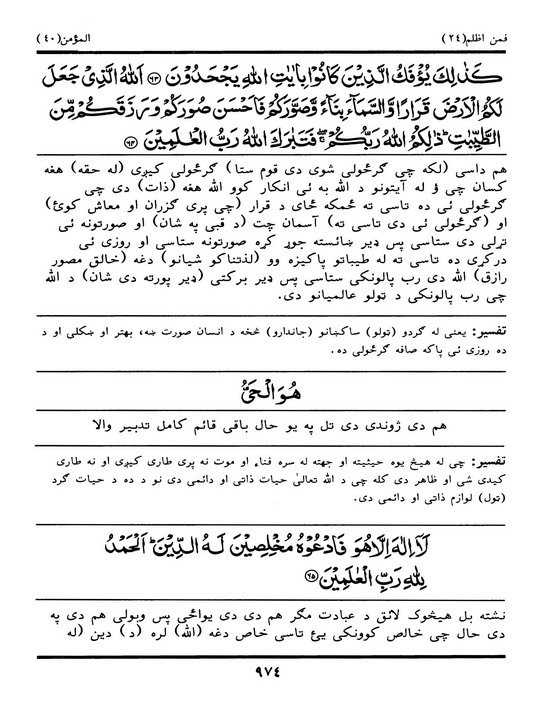 فمن اظلم (٢٤)
المؤمن (٤٠)
كَذٰلِكَ يُؤْفَكُ الَّذِيْنَ كَانُوْا بِاٰيٰتِ اللّٰهِ يَجْحَدُوْنَ ﴿٦٣﴾ اَللّٰهُ الَّذِيْ جَعَلَ
لَكُمُ الْاَرْضَ قَرَارًا وَّالسَّمَآءَ بِنَآءً وَّصَوَّرَكُمْ فَاَحْسَنَ صُوَرَكُمْ وَرَزَقَكُمْ مِّنَ
الطَّيِّبٰتِ ؕ ذٰلِكُمُ اللّٰهُ رَبُّكُمْ ۖ فَتَبٰرَكَ اللّٰهُ رَبُّ الْعٰلَمِيْنَ ﴿٦٤﴾
هم داسې (لکه چې ګرځولی شوی دی قوم ستا) ګرځولی کیږی (له حقه) هغه
کسان چې وُ له آیتونو د الله به ئی انکار کوو الله هغه (ذات) دی چې
ګرځولی ئی ده تاسی ته ځمکه ځای د قرار (چی پری ګزران او معاش کوئ)
او (ګرځولی ئی دی تاسی ته) آسمان چت (د قبی په شان) او صورتونه ئی
تړلی دی ستاسی پس ډیر ښائسته جوړ کړه صورتونه ستاسی او روزی ئی
درکړی ده تاسی ته له طیباتو پاکیزه وو (لذتناکو شیانو) دغه (خالق مصور
رازق) الله دی رب پالونکی ستاسی پس ډیر برکتی (ډیر پورته دی شان) د الله
چی رب پالونکی د ټولو عالمیانو دی.
تفسیر: یعنی له ګردو (ټولو) ساکښانو (جاندارو) څخه د انسان صورت ښه، بهتر او ښکلی او د
ده روزی ئی پاکه صافه ګرځولی ده.
هُوَ الْحَيُّ
هم دی ژوندی دی تل په یو حال باقی قائم کامل تدبیر والا
تفسیر: چی له هیڅ یوه حیثیته او جهته له سره فناء او موت نه پری طاری کیږی او نه طاری
کیدی شی او ظاهر دی کله چی د الله تعالیٰ حیات ذاتی او دائمی دی نو د ده د حیات ګرد
(ټول) لوازم ذاتی او دائمی دی.
لَآ اِلٰهَ اِلَّا هُوَ فَادْعُوْهُ مُخْلِصِيْنَ لَهُ الدِّيْنَ ؕ اَلْحَمْدُ
لِلّٰهِ رَبِّ الْعٰلَمِيْنَ ﴿٦٥﴾
نشته بل هیڅوک لائق د عبادت مګر هم دی دی یواځی پس وبولی هم دی په
دی حال چی خالص کوونکی یئ تاسی خاص دغه (الله) لره (د) دین (له
٩٧٤